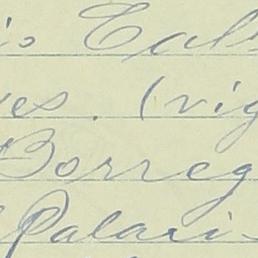 io Call
es. (vig
Borreg
Palari-